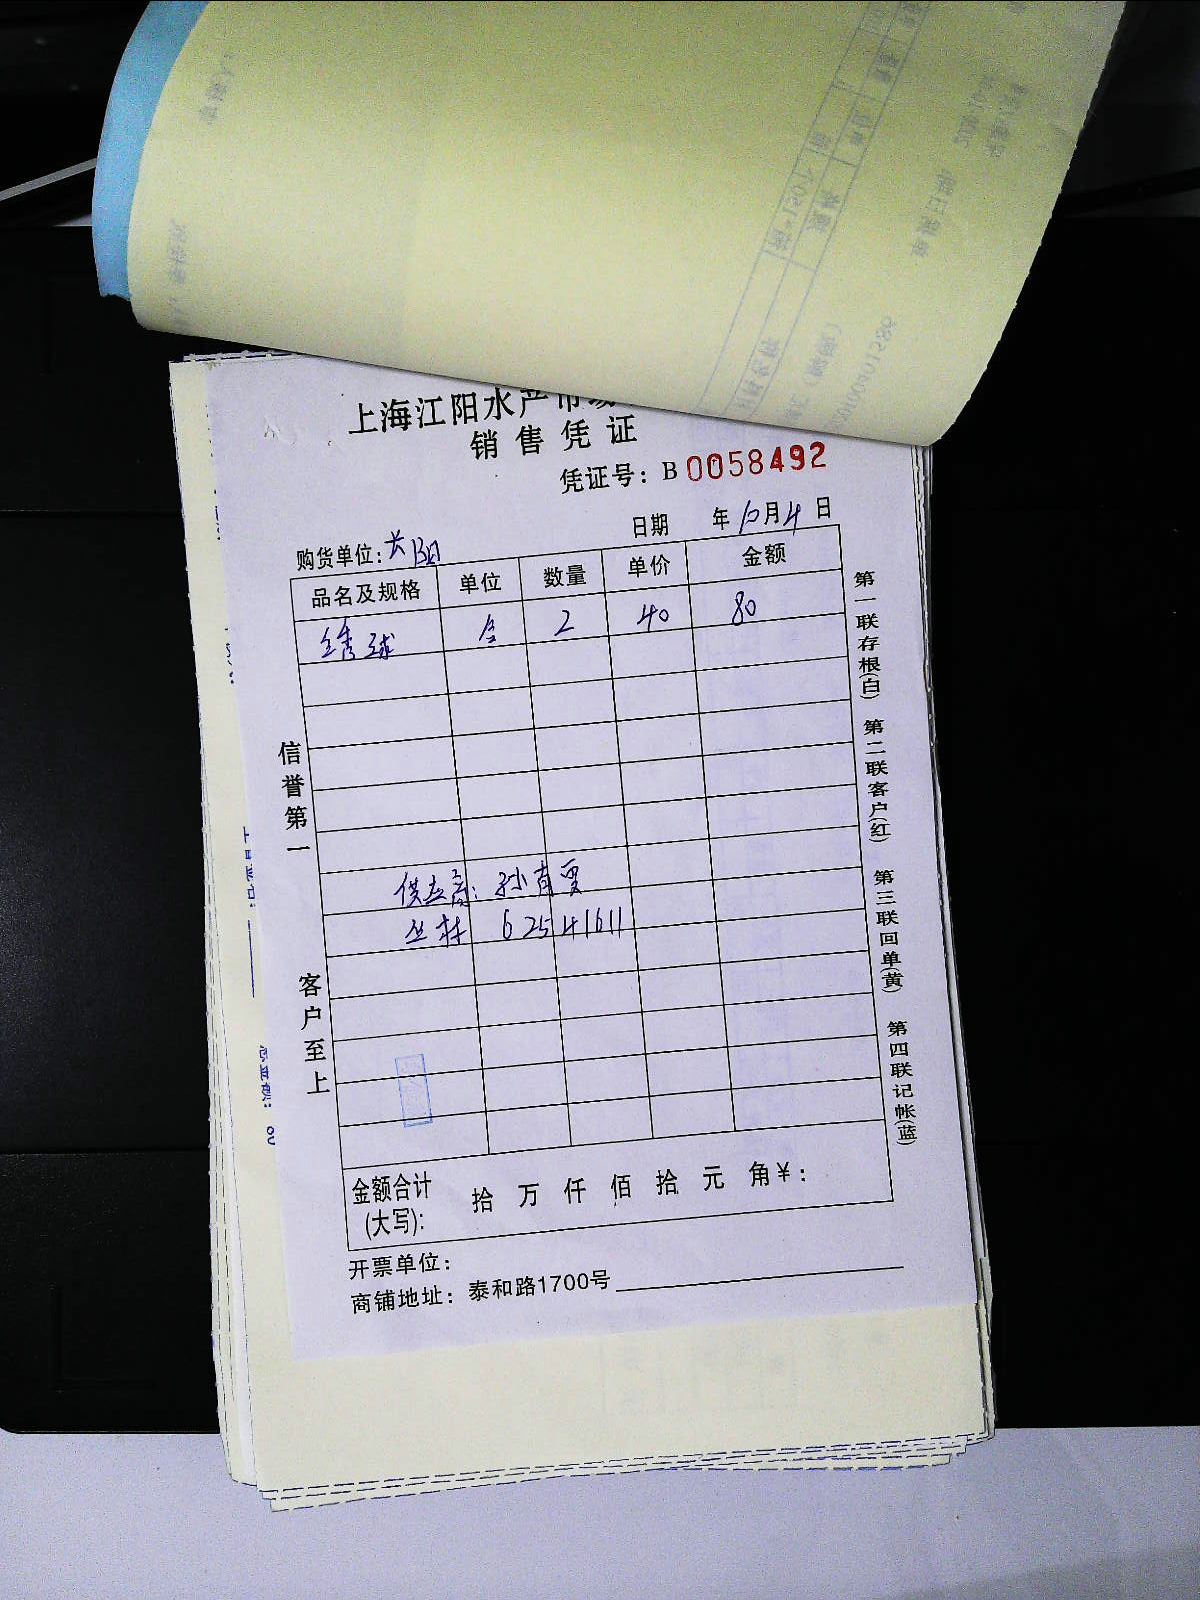 上海江阳水产市场
销售凭证
凭证号：B 0058492
日期 年10月4日
购货单位：长阳
品名及规格 单位 数量 单价 金额
绣球 盒 2 40 80
供应商：孙育贾
丛林 62541611
信誉第一
客户至上
金额合计(大写)： 拾 万 仟 佰 拾 元 角￥：
开票单位：
商铺地址：泰和路1700号
第一联存根(白) 第二联客户(红) 第三联回单(黄) 第四联记帐(蓝)